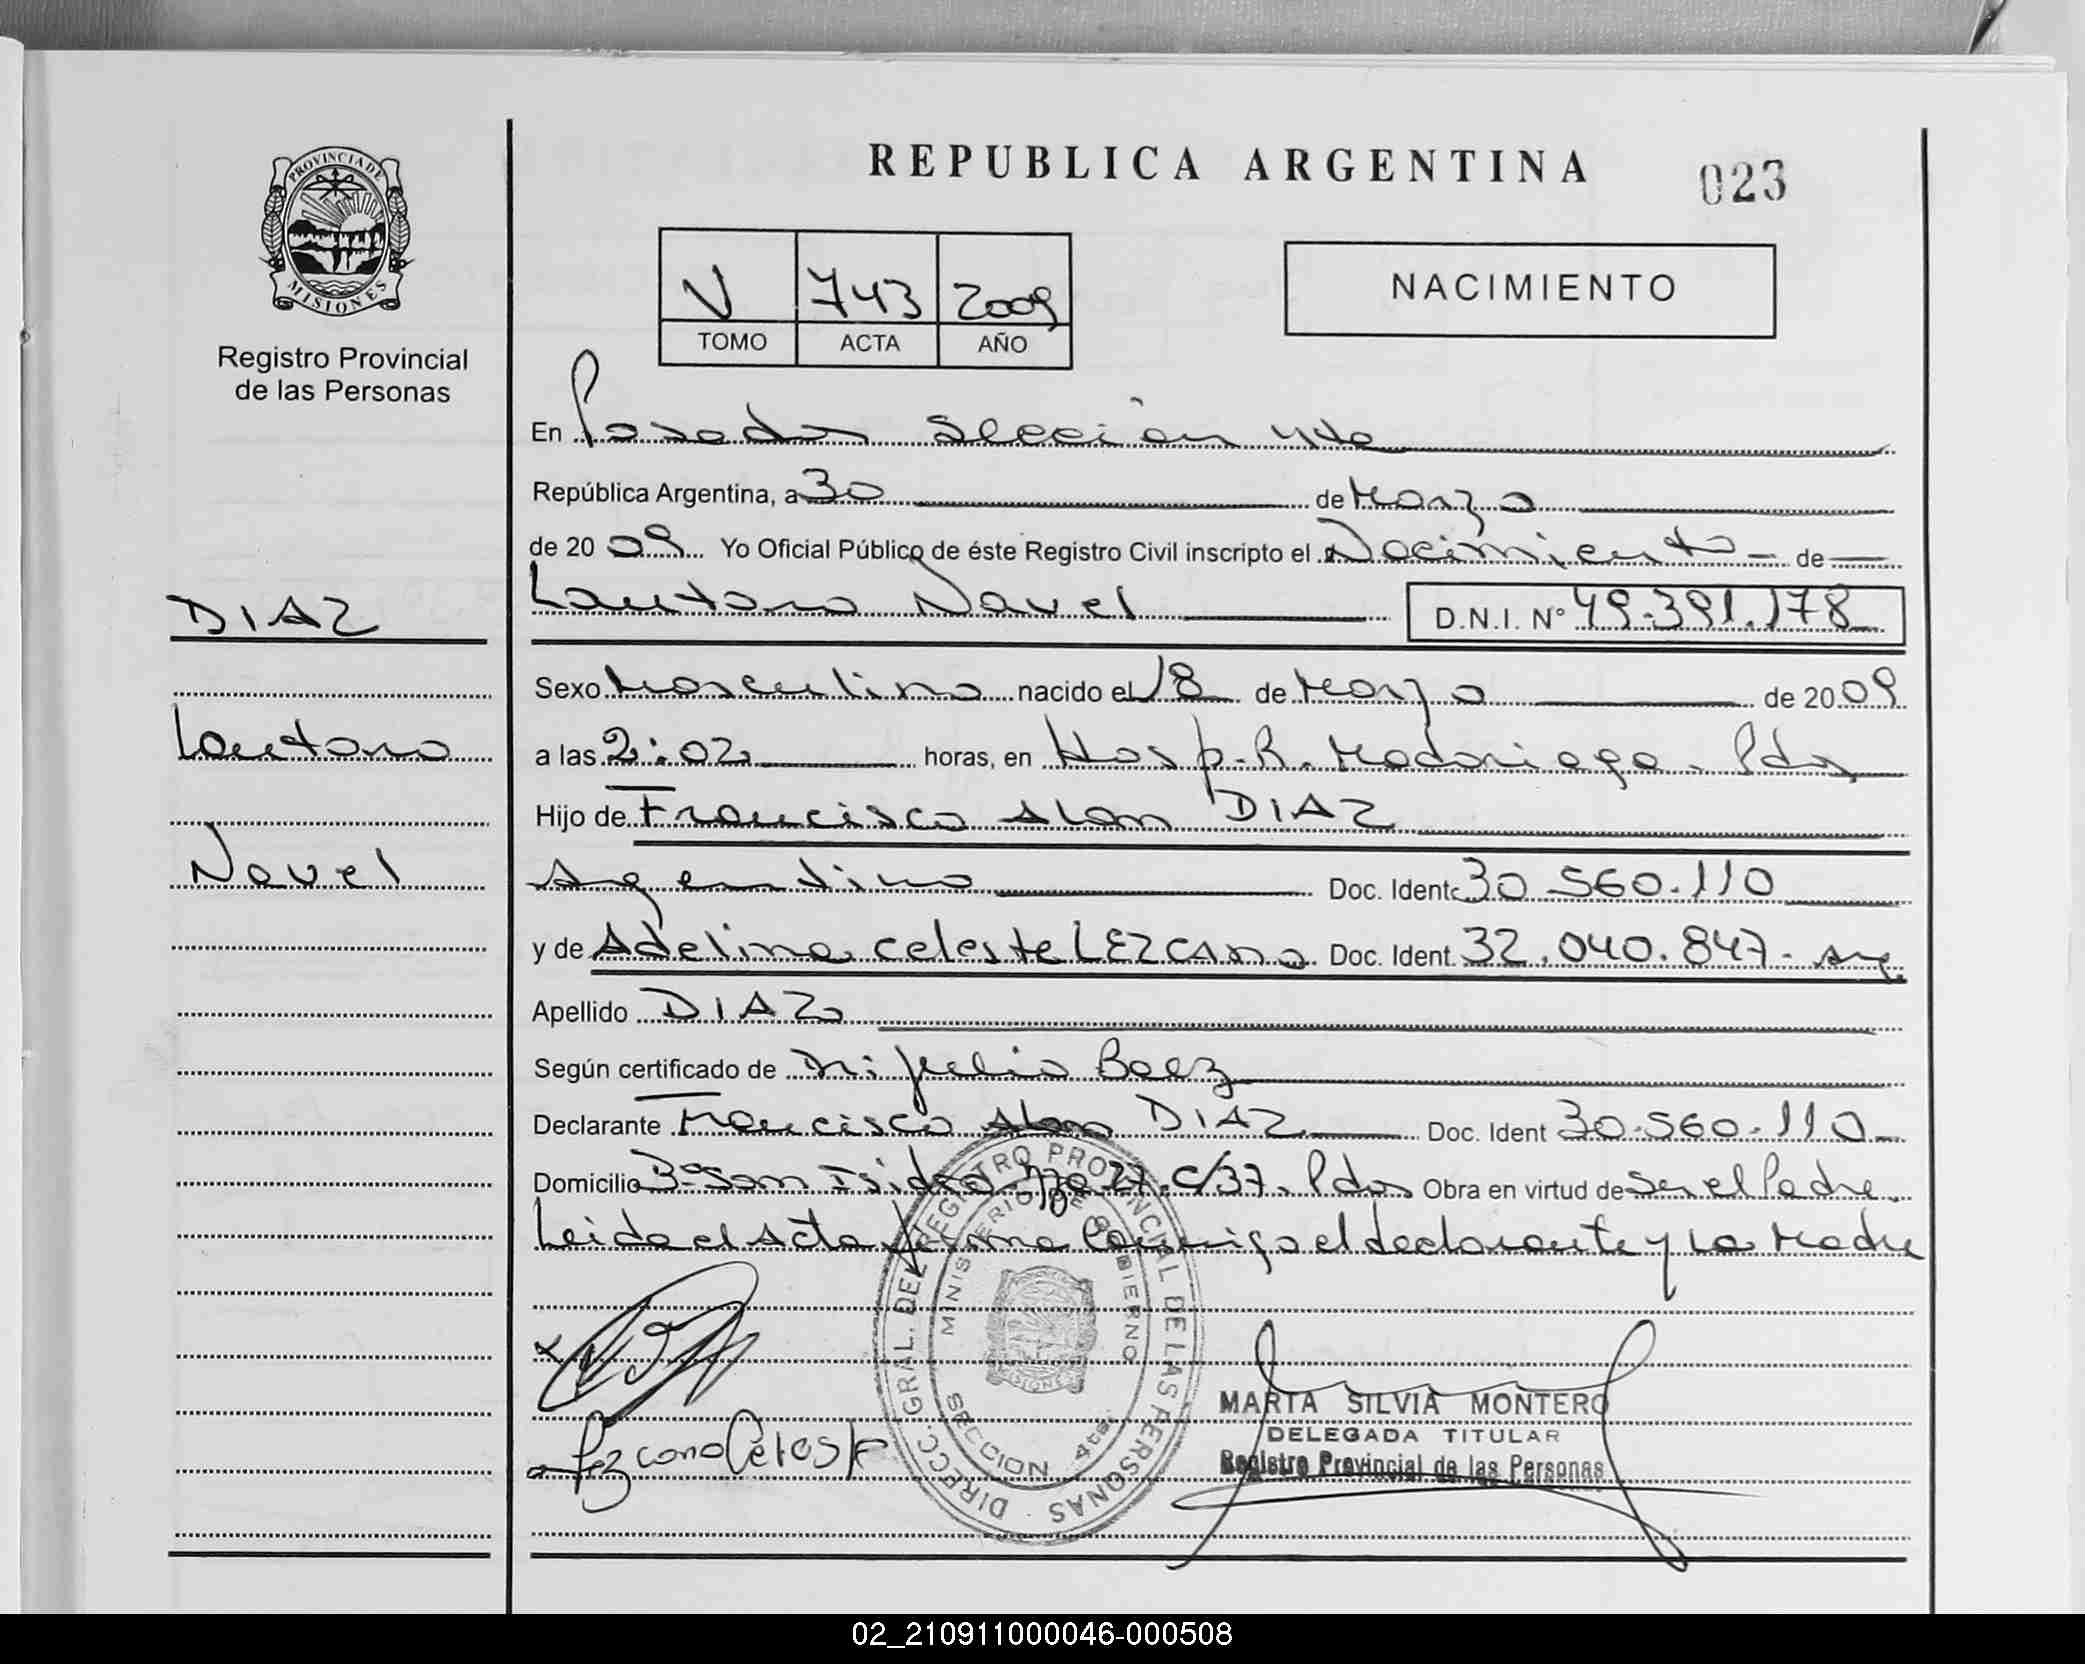 REPUBLICA ARGENTINA
023
PROVINCIA DE
MISIONES
Registro Provincial
de las Personas
V 743 2009
TOMO ACTA AÑO
NACIMIENTO
En Posadas Sección 4ta
República Argentina, a 30 de Marzo
de 2009 Yo Oficial Público de éste Registro Civil inscripto el Nacimiento de
Lautaro Navel D.N.I. Nº 49.391.178
DIAZ
Lautaro
Navel
Sexo Masculino nacido el 18 de Marzo de 2009
a las 2:02 horas, en Hosp. R. Madariaga - Pdas
Hijo de Francisco Alan DIAZ
Argentino Doc. Ident. 30.560.110
y de Adelina Celeste LEZCANO Doc. Ident. 32.040.847 - Arg.
Apellido DIAZ
Según certificado de Dr: Julio Baez
Declarante Francisco Alan DIAZ Doc. Ident 30.560.110
Domicilio Bº San Isidro Mza 27. C/37. Pdas Obra en virtud de Ser el Padre.
Leida el Acta firma Conmigo el declarante y la Madre
DIRECC. GRAL. DEL REGISTRO PROVINCIAL DE LAS PERSONAS
MINISTERIO DE GOBIERNO
SECCION 4ta.
MISIONES
Lezcano Celeste
MARTA SILVIA MONTERO
DELEGADA TITULAR
Registro Provincial de las Personas
02_210911000046-000508